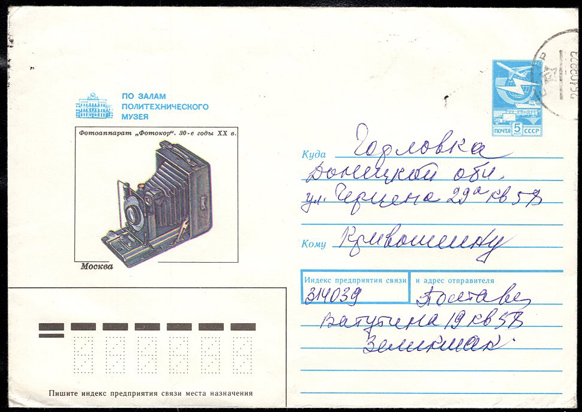 ПО ЗАЛАМ
ПОЛИТЕХНИЧЕСКОГО
МУЗЕЯ
Фотоаппарат „Фотокор". 30-е годы XX в.
Москва
ПОЧТА 5 СССР
Куда Горловка
Донецкой обл.
ул. Герцена 29а кв 58
Кому Кривошеину
Индекс предприятия связи и адрес отправителя
314039 Полтава
Ватутина 19 кв 58
Зеликман
Пишите индекс предприятия связи места назначения